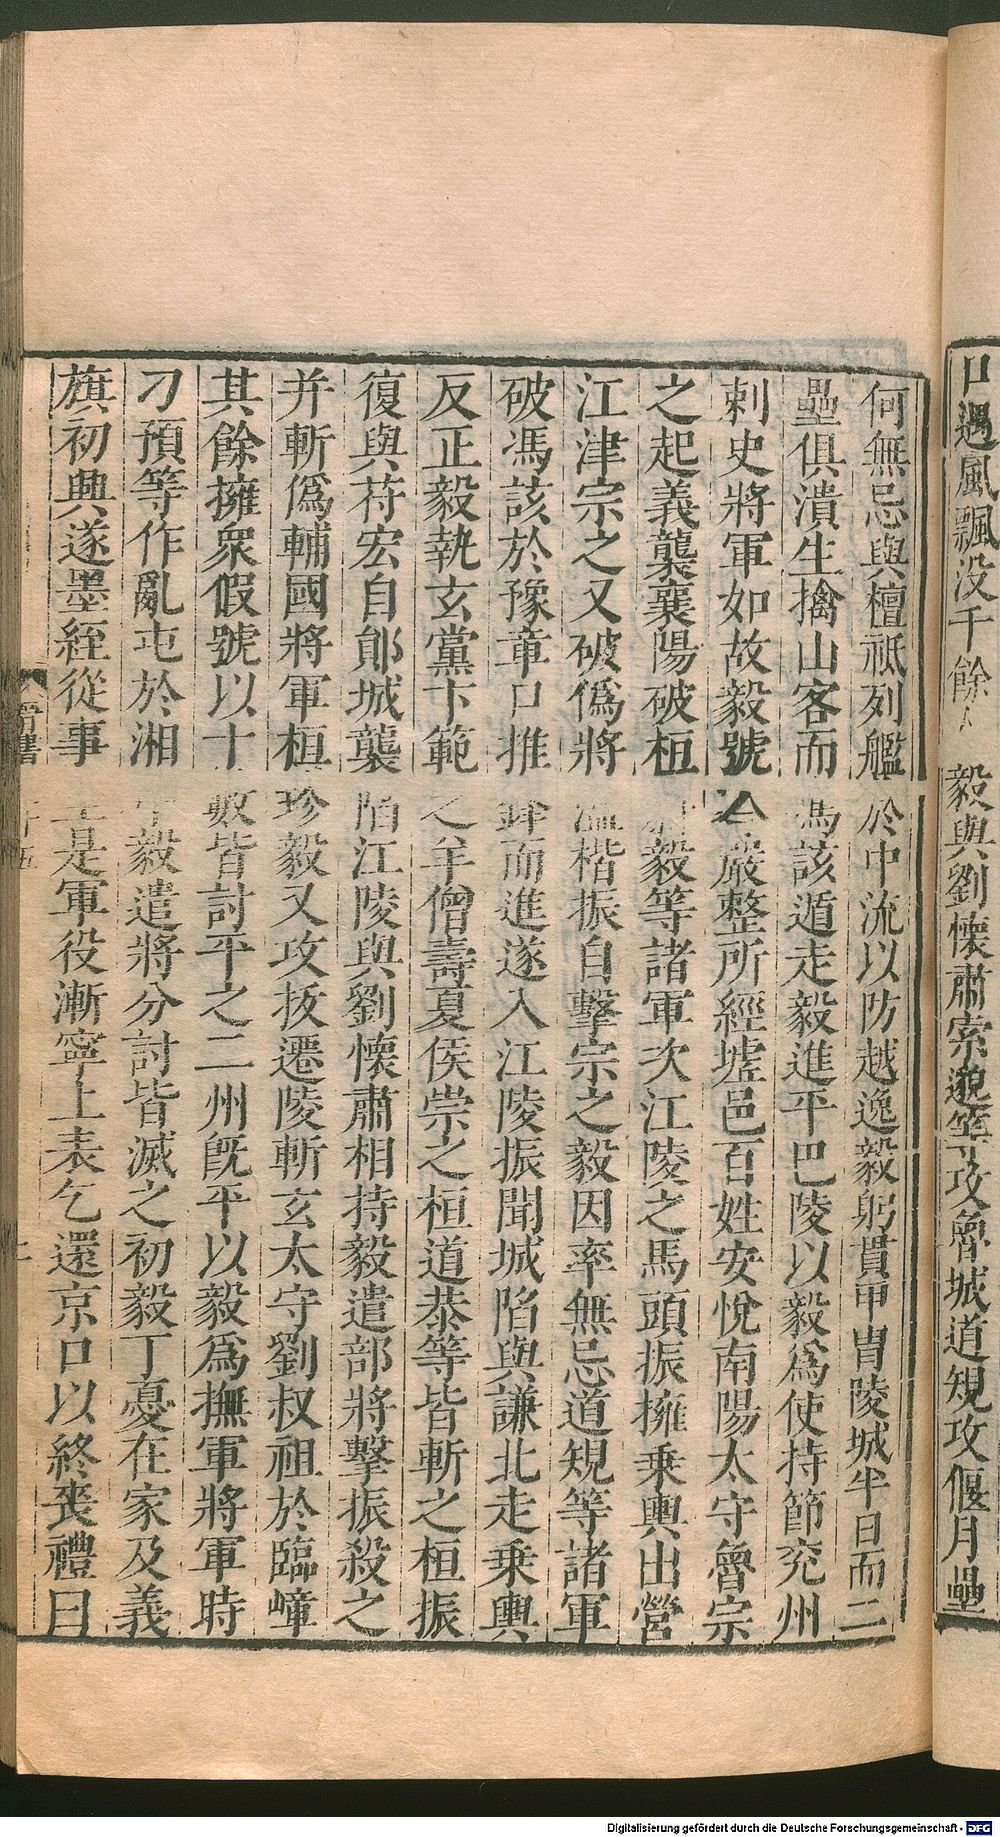 口遇風飄没千餘人毅與劉懷肅索邈等攻魯城道規攻偃月壘
何無忌與檀祗列艦於中流以防越逸毅躬貫甲冑陵城半日而二
壘俱潰生擒山客而馮該遁走毅進平巴陵以毅爲使持節兖州
刺史將軍如故毅號令嚴整所經墟邑百姓安悅南陽太守魯宗
之起義襲襄陽破桓蔚毅等諸軍次江陵之馬頭振擁乗輿出營
江津宗之又破僞將温楷振自擊宗之毅因率無忌道規等諸軍
破馮該於豫章口推鋒而進遂入江陵振聞城陷與謙北走乗輿
反正毅執玄黨卞範之羊僧壽夏侯崇之桓道恭等皆斬之桓振
復與苻宏自鄖城襲陷江陵與劉懷肅相持毅遣部將擊振殺之
并斬僞輔國將軍桓珍毅又攻拔遷陵斬玄太守劉叔祖於臨嶂
其餘擁衆假號以十數皆討平之二州旣平以毅爲撫軍將軍時
刁預等作亂屯於湘中毅遣將分討皆滅之初毅丁憂在家及義
旗初興遂墨絰從事至是軍役漸寧上表乞還京口以終喪禮曰
晉書
Digitalisierung gefördert durch die Deutsche Forschungsgemeinschaft - DFG